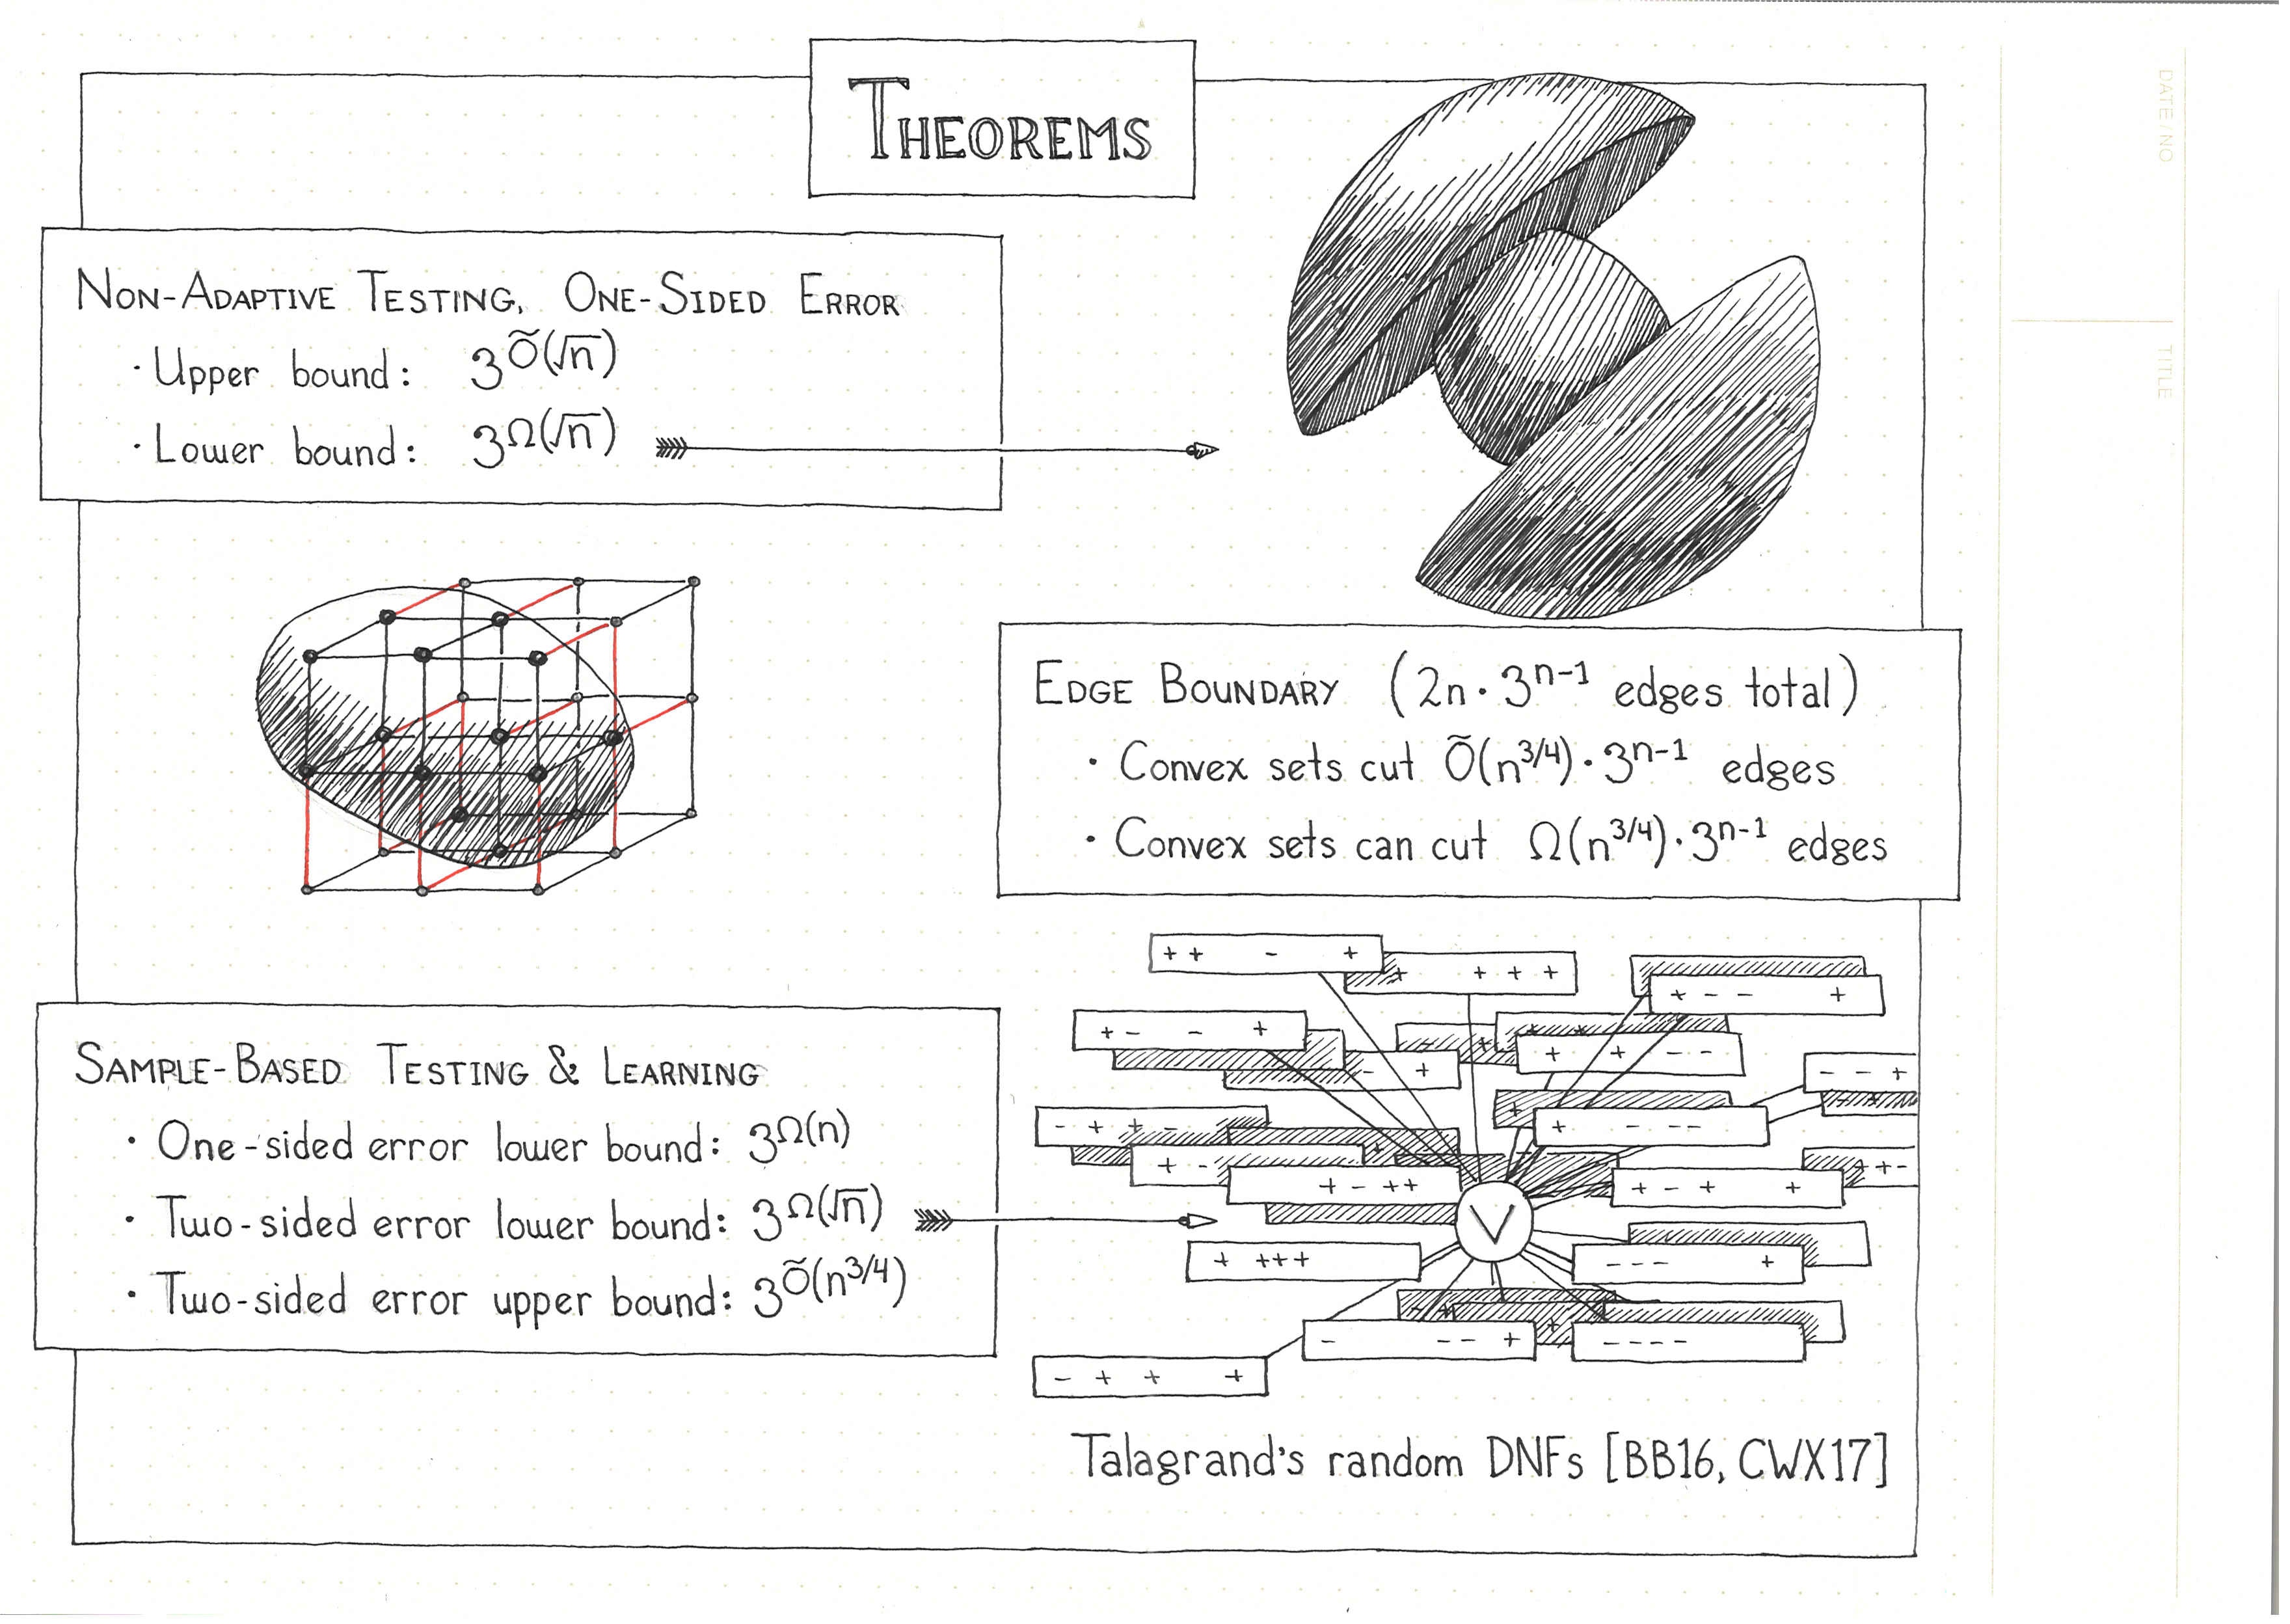 THEOREMS
NON-ADAPTIVE TESTING, ONE-SIDED ERROR
· Upper bound: 3^Õ(√n)
· Lower bound: 3^Ω(√n)
EDGE BOUNDARY (2n·3^{n-1} edges total)
· Convex sets cut Õ(n^{3/4})·3^{n-1} edges
· Convex sets can cut Ω(n^{3/4})·3^{n-1} edges
SAMPLE-BASED TESTING & LEARNING
· One-sided error lower bound: 3^Ω(n)
· Two-sided error lower bound: 3^Ω(√n)
· Two-sided error upper bound: 3^Õ(n^{3/4})
+ + - +
+ + + +
+ - - +
+ - - +
- +
+ + - -
- - +
- + + -
+ - - -
+ -
+ - + +
+ - + +
+ + -
V
+ + + +
- - - +
- - - +
- - - -
- + + +
Talagrand's random DNFs [BB16, CWX17]
DATE/NO
TITLE